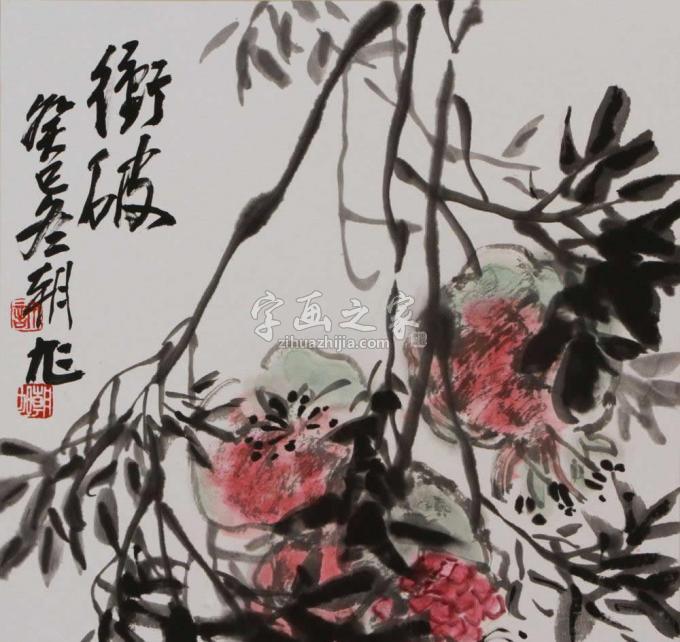 衝破
癸巳冬朝旭
字画之家
zihuazhijia.com